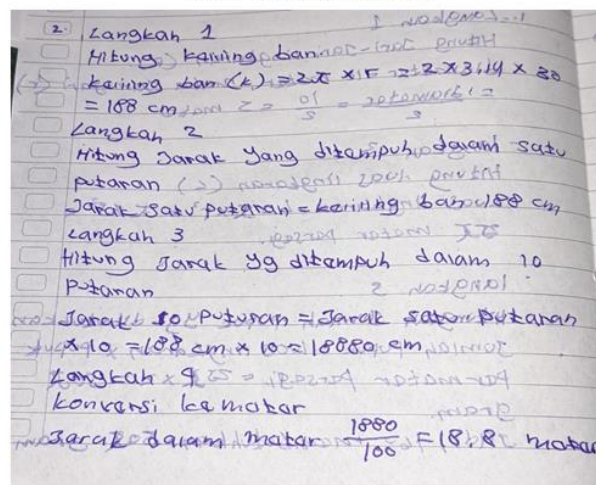 2. Langkah 1
Hitung keliling ban
keliling ban (k) = 2π × r = 2 × 3,14 × 30
= 188 cm
Langkah 2
Hitung Jarak yang ditempuh dalam satu
putaran
Jarak satu putaran = keliling ban 188 cm
Langkah 3
Hitung Jarak yg ditempuh dalam 10
Putaran
Jarak 10 Putaran = Jarak satu Putaran
× 10 = 188 cm × 10 = 18880 cm
Langkah 4
konversi ke matar
Jarak dalam matar 1880/100 = 18,8 matar